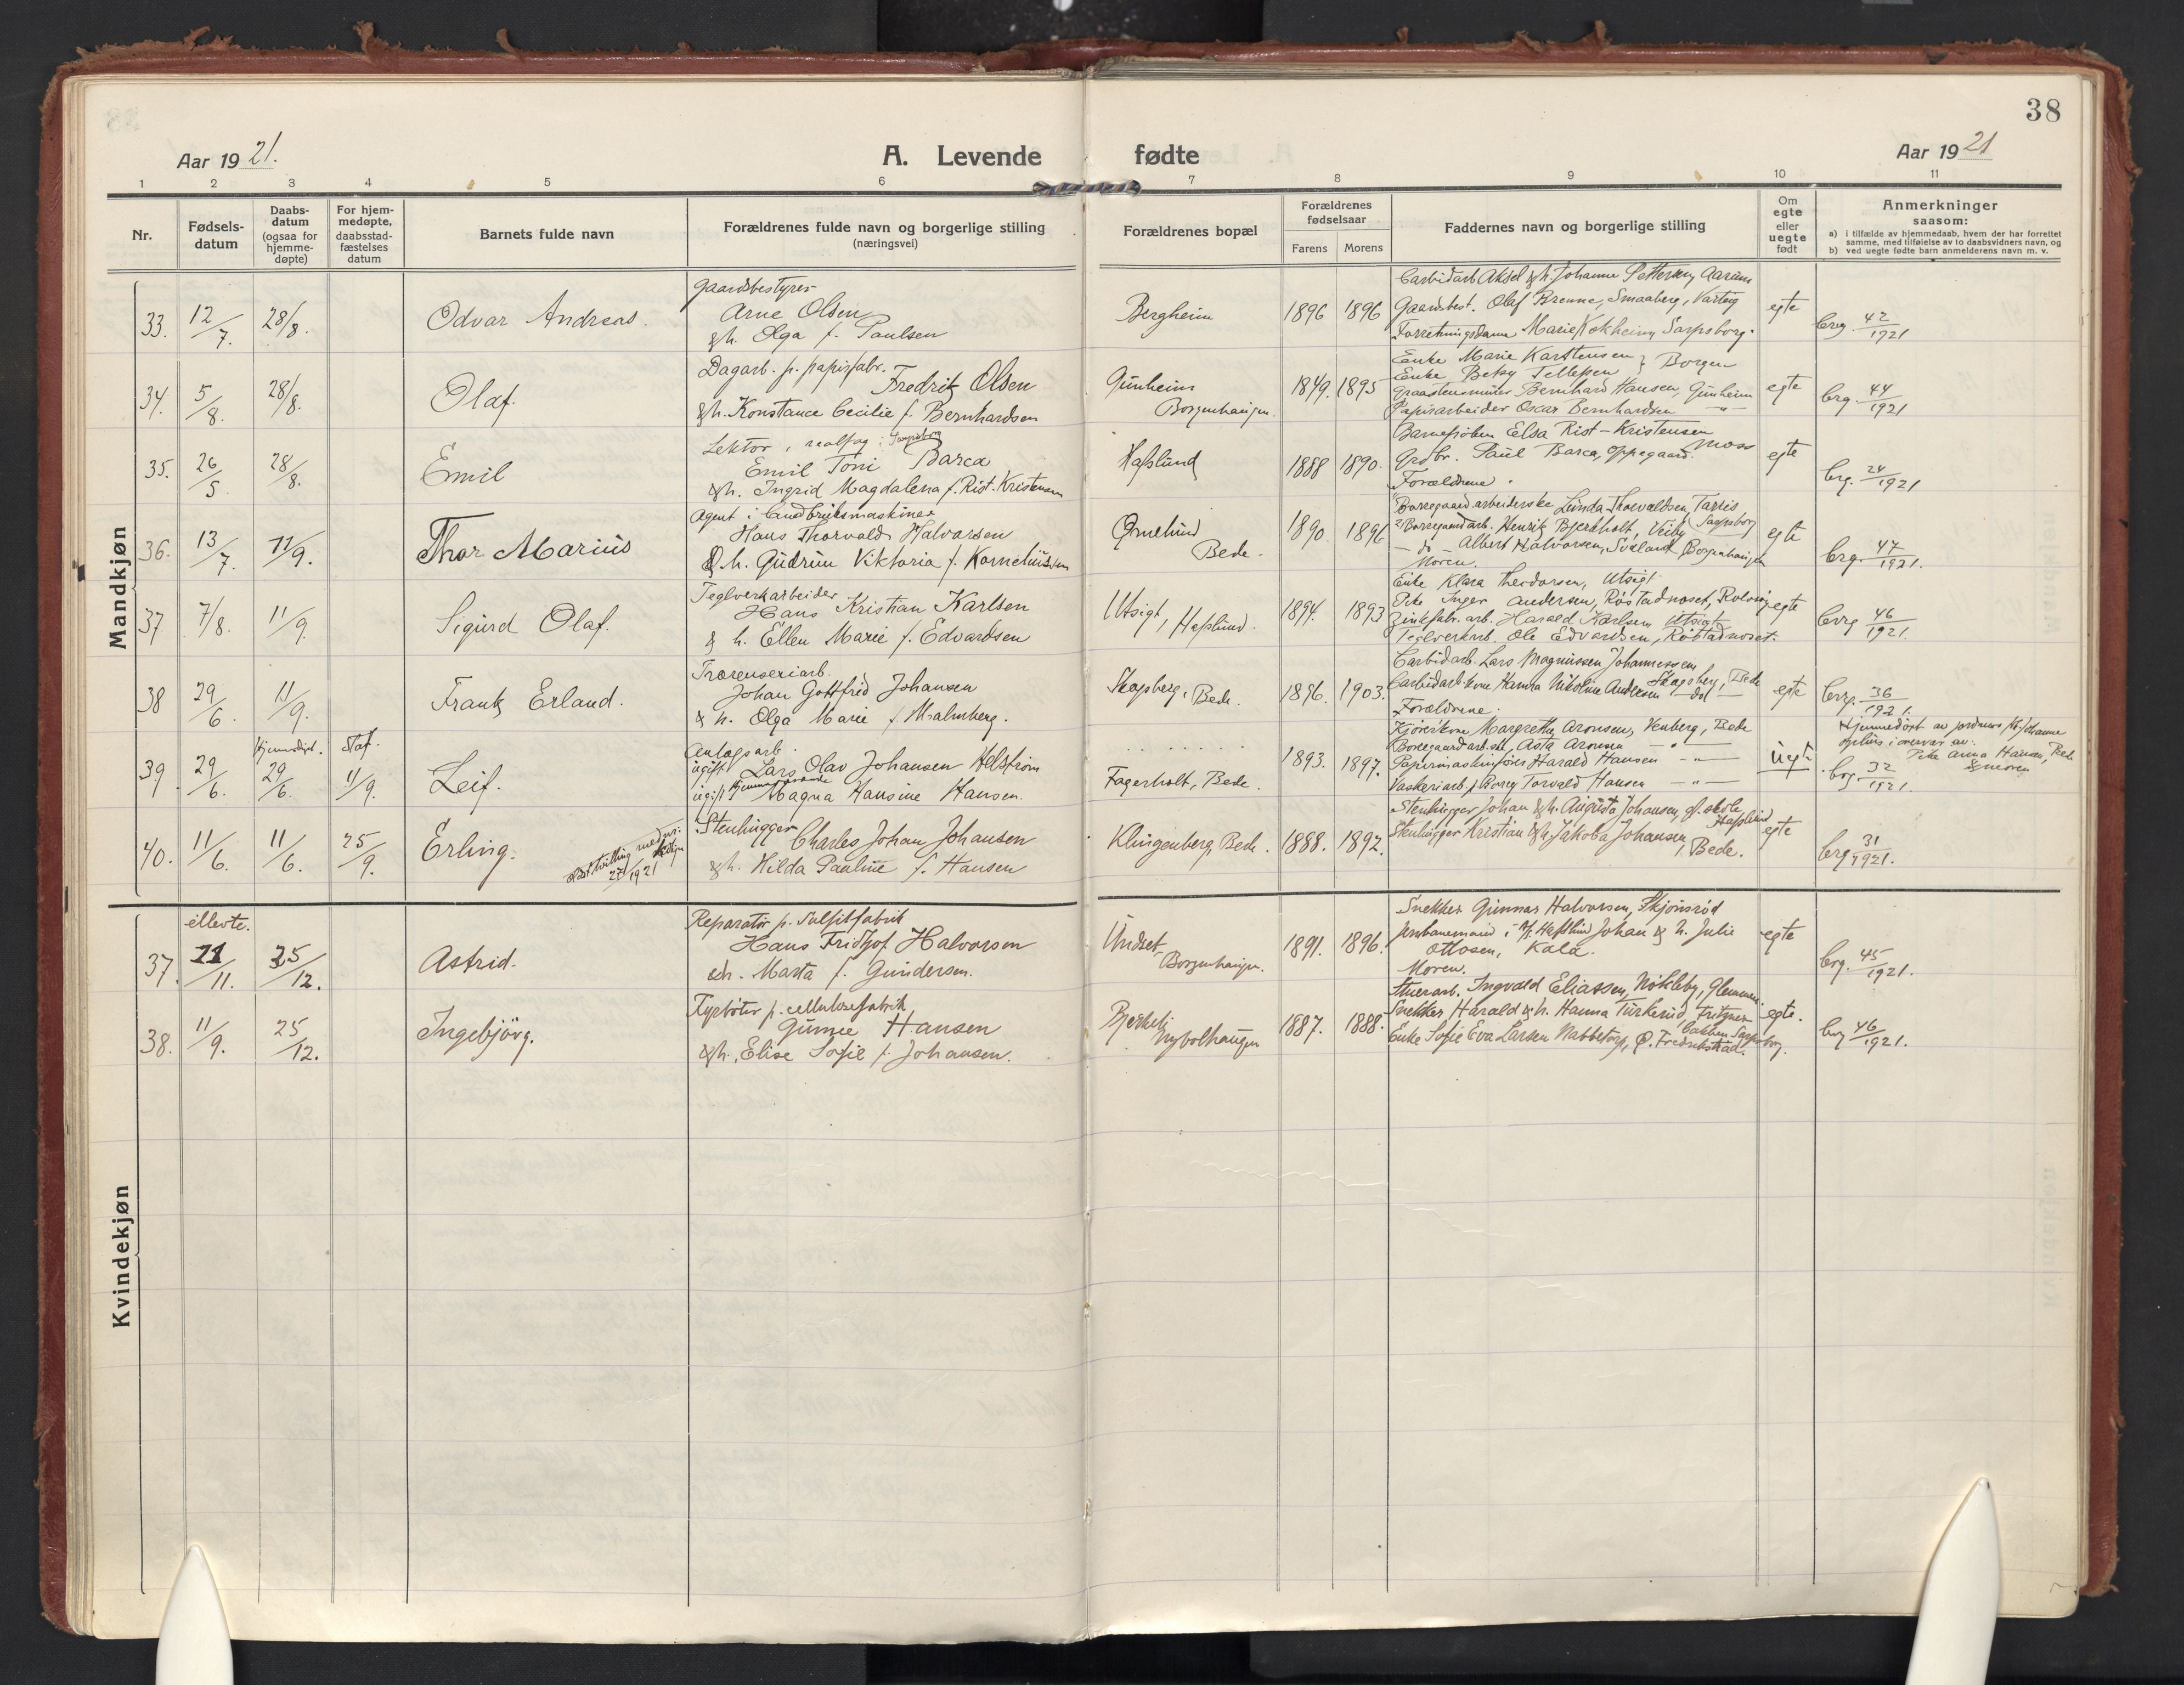 38
Aar 1921.
A. Levende fødte
Aar 1921
1 2 3 4 5 6 7 8 9 10 11
Nr.
Fødsels-
datum
Daabs-
datum
(ogsaa for
hjemme-
døpte)
For hjem-
medøpte,
daabsstad-
fæstelses
datum
Barnets fulde navn
Forældrenes fulde navn og borgerlige stilling
(næringsvei)
Forældrenes bopæl
Forældrenes
fødselsaar
Farens Morens
Faddernes navn og borgerlige stilling
Om
egte
eller
uegte
født
Anmerkninger
saasom:
a) i tilfælde av hjemmedaab, hvem der har forrettet
samme, med tilføielse av to daabsvidners navn, og
b) ved uegte fødte barn anmelderens navn m. v.
Mandkjøn
33. 12/7. 28/8. Odvar Andreas.
Gaardsbestyrer
Arne Olsen
& h. Olga f. Paulsen
Bergheim 1896 1896
Carbidarb. Aksel & h. Johanne Pettersen, Aarum
Gaardsbest. Olaf Brenne, Smaaberg, Varteig
Forretningsdame Marie Kokheim, Sarpsborg.
egte
brg. 42/1921
34. 5/8. 28/8. Olaf.
Dagarb. p. papirfabr.
Fredrik Olsen
& h. Konstance Cecilie f. Bernhardsen
Gunheim
Borgenhaugen.
1849. 1895
Enke Marie Karstensen } Borgen
Enke Betsy Tellefsen
Graastensmurer Bernhard Hansen, Gunheim
Papirarbeider Oscar Bernhardsen —"—
egte
brg. 44/1921
35. 26/5. 28/8. Emil
Lektor i realfag i Sarpsborg
Emil Toni Barca
& h. Ingrid Magdalena f. Rist-Kristensen
Hafslund 1888 1890.
Barnefrøken Elsa Rist-Kristensen Moss
Grdbr. Paul Barca, Oppegaard.
Forældrene.
egte
brg. 24/1921
36. 13/7. 11/9. Thor Marius
Agent i landbruksmaskiner
Hans Thorvald Halvorsen
& h. Gudrun Viktoria f. Korneliussen
Ornelund
Bede.
1890. 1896
Borregaard arbeiderske Lunda Thorvaldsen, Tarris
Borregaardarb. Henrik Bjerkholt, Veiby, Sarpsborg
— do — Albert Halvorsen, Svaland, Borgenhaugen
Moren.
egte
brg. 47/1921.
37 7/8. 11/9. Sigurd Olaf.
Teglverkarbeider
Hans Kristian Karlsen
& h. Ellen Marie f. Edvardsen
Utsigt, Hafslund. 1894. 1893
Enke Klara Theodorsen, Utsigt
Pike Inger Andersen, Röstadnoset, Rolvsöy
Zinkfabr. arb. Harald Karlsen Utsigt
Teglverkarb. Ole Edvardsen, Röstadnoset.
egte
brg. 46/1921.
38 29/6. 11/9. Frank Erland.
Træsenseriarb.
Johan Gottfrid Johansen
& h. Olga Marie f. Malmberg.
Skogsberg, Bede. 1896. 1903.
Carbidarb. Lars Magnussen Johannessen
Carbidarb.kone Hanna Nikoline Andersen Skogsberg, Bede
— do —
Forældrene.
egte
brg. 36/1921.
39. 29/6. Hjemmedøpt. 29/6. Staf. 11/9. Leif.
Anlægsarb.
ugift Lars Olav Johansen Helström
ugift Hjemmeværende Magna Hansine Hansen.
. . . . . .
Fagerholt, Bede.
1893. 1897.
Kjörerkone Margrethe Aronsen, Venberg, Bede
Borregaardarb.ske, Asta Aronsen —"—
Papirmaskinförer Harald Hansen —"—
Vaskeriarb. p. Borreg. Torvald Hansen —"—
Uegt.
Hjemmedöpt av jordmor frk. Johanne
Sylius i overvær av:
Pike Anna Hansen, Bede
& moren
brg. 32/1921.
40. 11/6. 11/6. 25/9. Erling.
ældst tvilling med nr.
27/1921 kvkjn
Stenhugger
Charles Johan Johansen
& h. Hilda Pauline f. Hansen
Klingenberg, Bede. 1888. 1892.
Stenhugger Johan & h. Augusta Johansen, gl. skole, Hafslund
Stenhugger Kristian & h. Jakoba Johansen, Bede.
egte
brg. 31/1921.
Kvindekjøn
37. ellevte. 11/11. 25/12. Astrid.
Reparatör p. Sulfitfabrik
Hans Fridtjof Halvorsen
& h. Marta f. Gundersen.
Undset
Borgenhaugen.
1891. 1896.
Snekker Gunnar Halvorsen, Skjönsröd
Jernbanemand i N. Hafslund Johan & h. Julie
Ottosen, Kala.
Moren.
egte
brg. 45/1921.
38. 11/9. 25/12. Ingebjörg.
Fyrböter p. cellulosefabrik
Gunne Hansen
& h. Elise Sofie f. Johansen.
Bjerkeli
Nybolhaugen
1887. 1888.
Stuerarb. Ingvald Eliassen, Nökleby, Glemmen.
Snekker Harald & h. Hanna Turkerud, Fritzner
bakken Sarpsborg.
Enke Sofie Eva Larsen Nabbetorp, Ø. Fredrikstad.
egte.
brg. 46/1921.